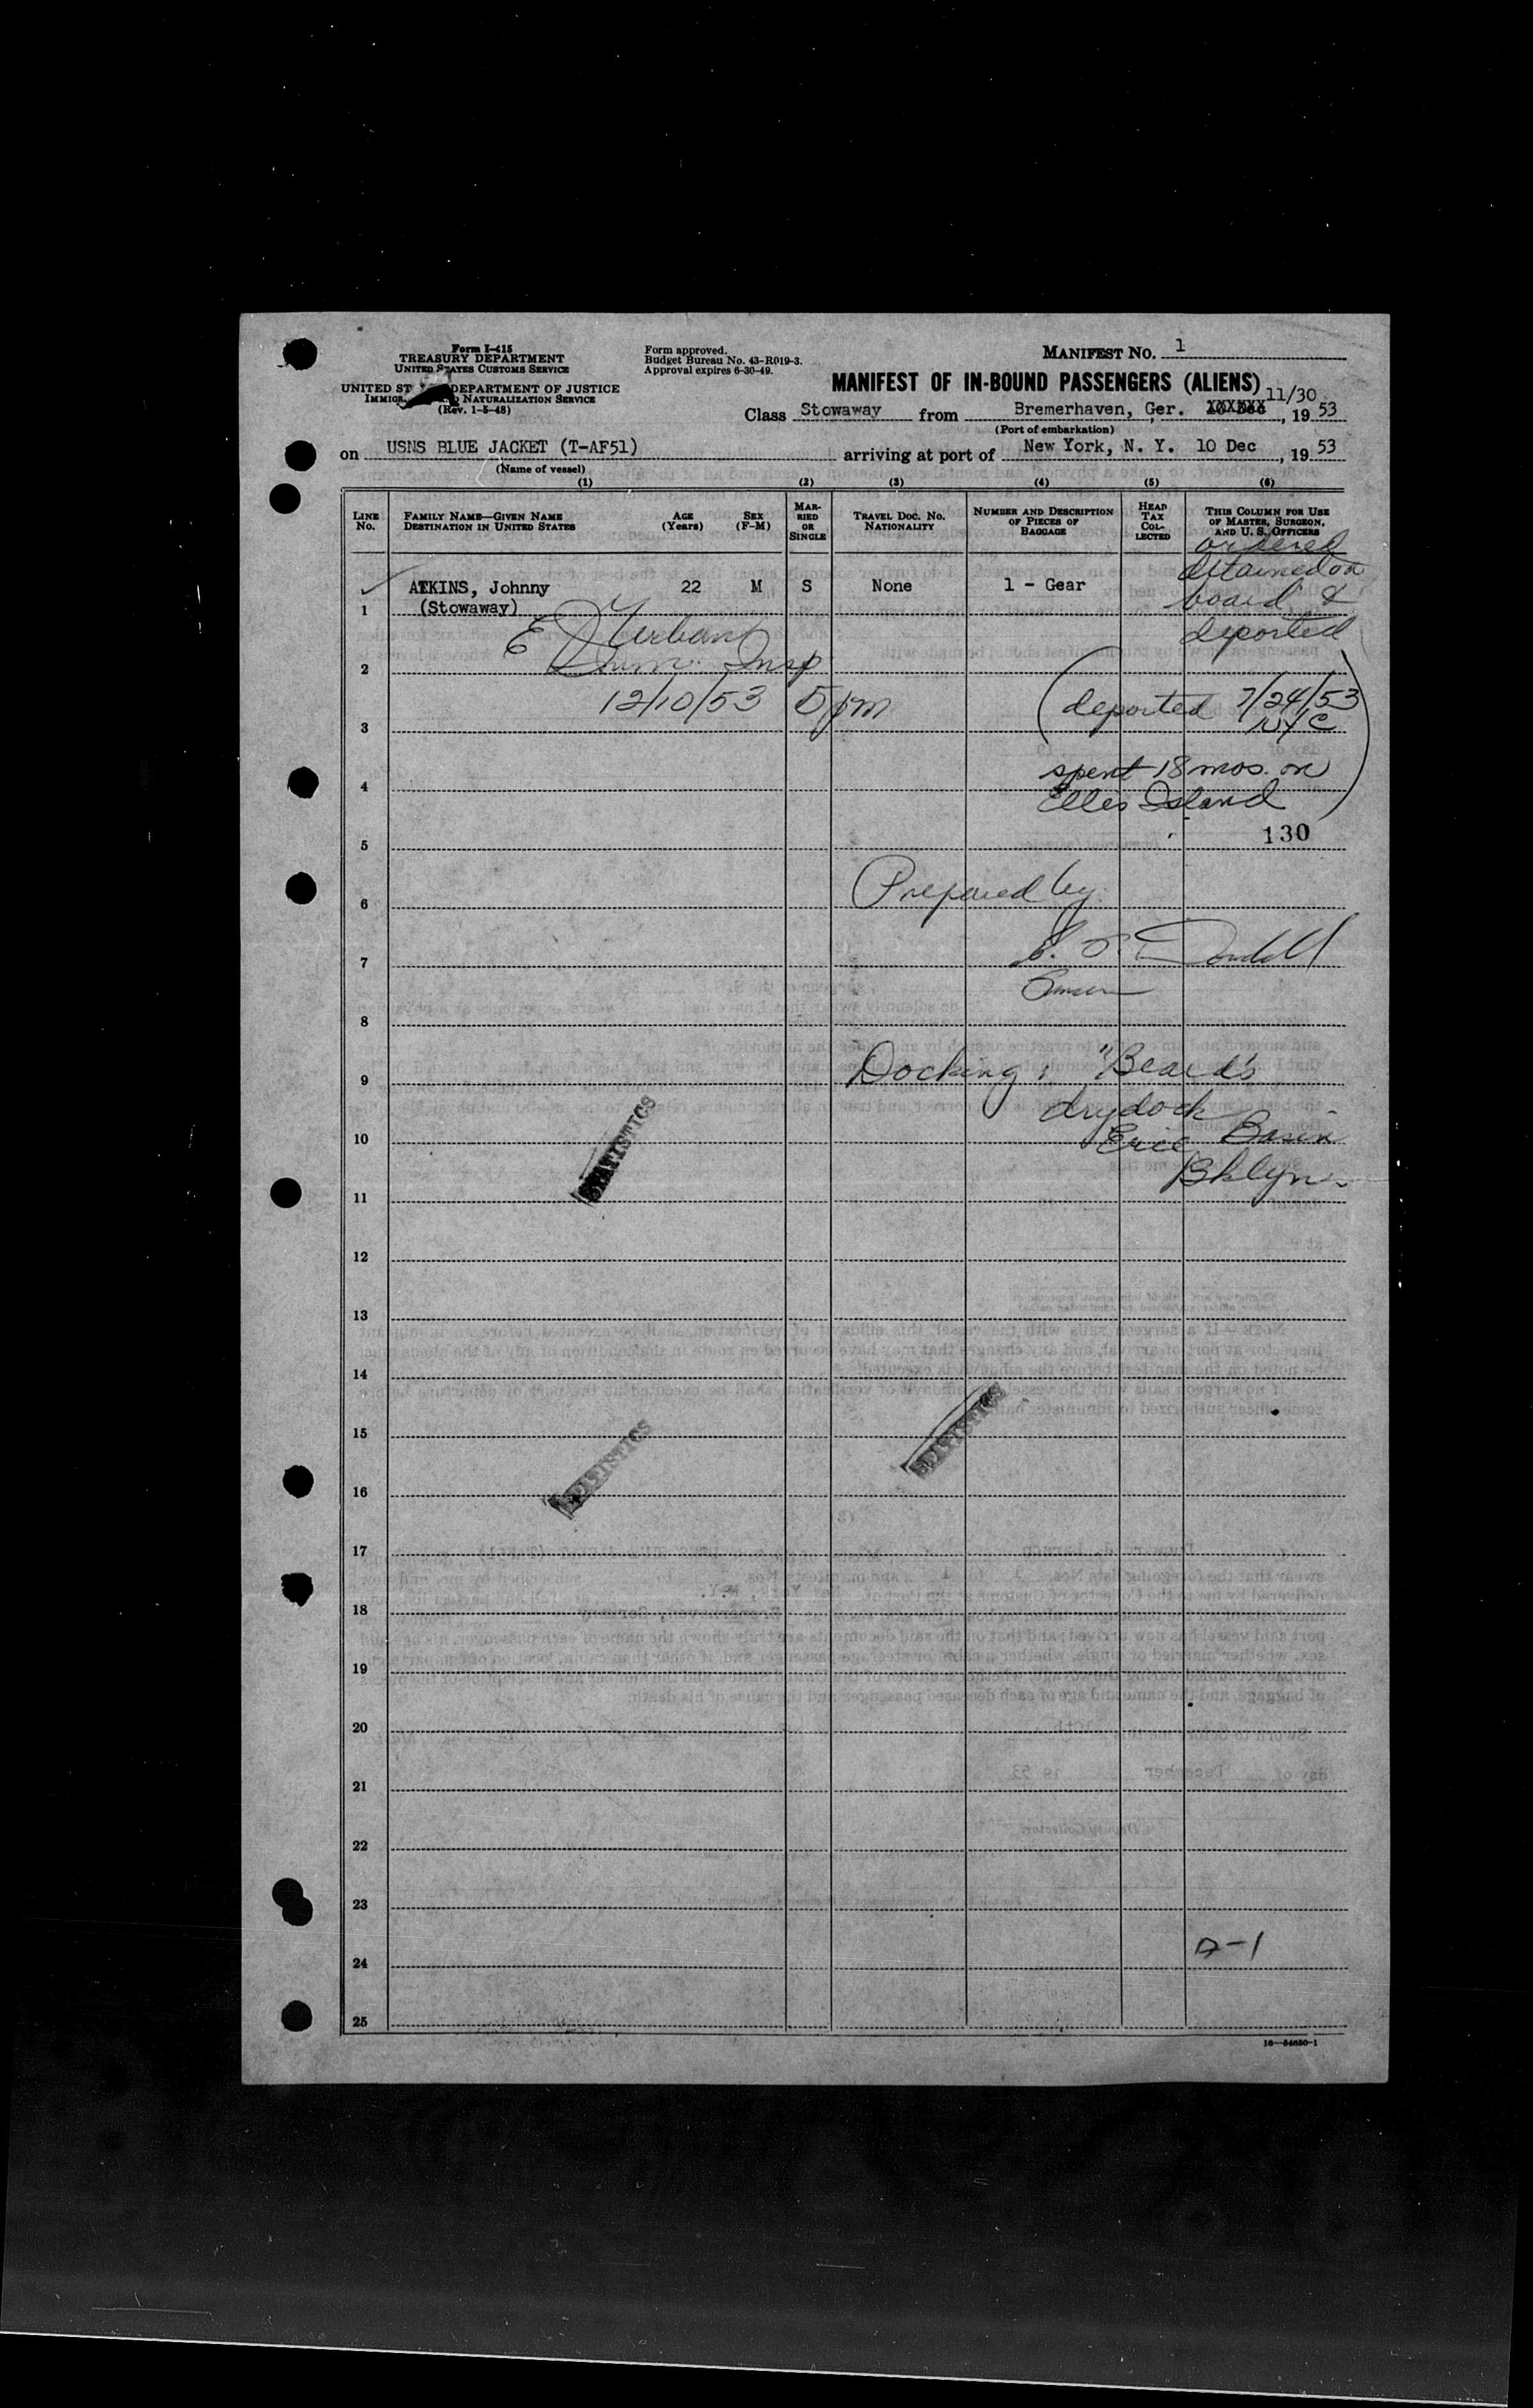 Form I-415
TREASURY DEPARTMENT
UNITED STATES CUSTOMS SERVICE
UNITED ST DEPARTMENT OF JUSTICE
IMMIGR NATURALIZATION SERVICE
(Rev. 1-5-48)
Form approved.
Budget Bureau No. 43-R019-3.
Approval expires 6-30-49.
MANIFEST NO. 1
MANIFEST OF IN-BOUND PASSENGERS (ALIENS)
11/30
Class Stowaway from Bremerhaven, Ger. , 19 53
(Port of embarkation)
on USNS BLUE JACKET (T-AF51) arriving at port of New York, N. Y. 10 Dec , 19 53
(Name of vessel)
(1) (2) (3) (4) (5) (6)
LINE No.
FAMILY NAME—GIVEN NAME
DESTINATION IN UNITED STATES
AGE (Years)
SEX (F-M)
MARRIED OR SINGLE
TRAVEL DOC. NO.
NATIONALITY
NUMBER AND DESCRIPTION OF PIECES OF BAGGAGE
HEAD TAX COLLECTED
THIS COLUMN FOR USE OF MASTER, SURGEON, AND U. S. OFFICERS
ordered
detained on
board &
deported
1 ATKINS, Johnny 22 M S None 1 - Gear
(Stowaway)
E J Urban
Imm. Insp
12/10/53 5 pm
2
(deported 7/24/53
NYC
3
spent 18 mos. on
Ellis Island)
4
130
5
Prepared by:
6
7
8
Docking: "Beard's
drydock
Erie Basin
Bklyn
9
10
STATISTICS
11
12
13
14
15
STATISTICS
STATISTICS
16
17
18
19
20
21
22
23
24
25
16—54650-1